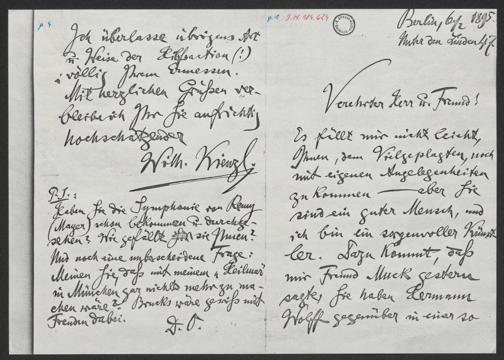 p. 4
Ich überlasse übrigens Art
u. Weise der Reaction (!)
völlig Ihrem Ermessen.
Mit herzlichen Grüßen ver-
bleibe ich Ihr Sie aufrichtig
hochschätzender
Wilh. Kienzl.
P.S.:
Haben Sie die Symphonie von Remy
(Mayer) schon bekommen u. durchge-
sehen? Wie gefällt sie Ihnen?
Und noch eine unbescheidene Frage:
Meinen Sie, daß mit meinem „Heilmar"
in München gar nichts mehr zu ma-
chen wäre? Brucks wäre gewiß mit
Freuden dabei.
D. O.
p. 1 I.N. 184.624
Berlin, 6/2 1895
Unter den Linden 47
Verehrter Herr u. Freund!
Es fällt mir nicht leicht,
Ihnen, dem Vielgeplagten, noch
mit eigenen Angelegenheiten
zu kommen — aber Sie
sind ein guter Mensch, und
ich bin ein sorgenvoller Künst-
ler. Dazu kommt, daß
mir Freund Muck gestern
sagte, Sie haben Hermann
Wolff gegenüber in einer so